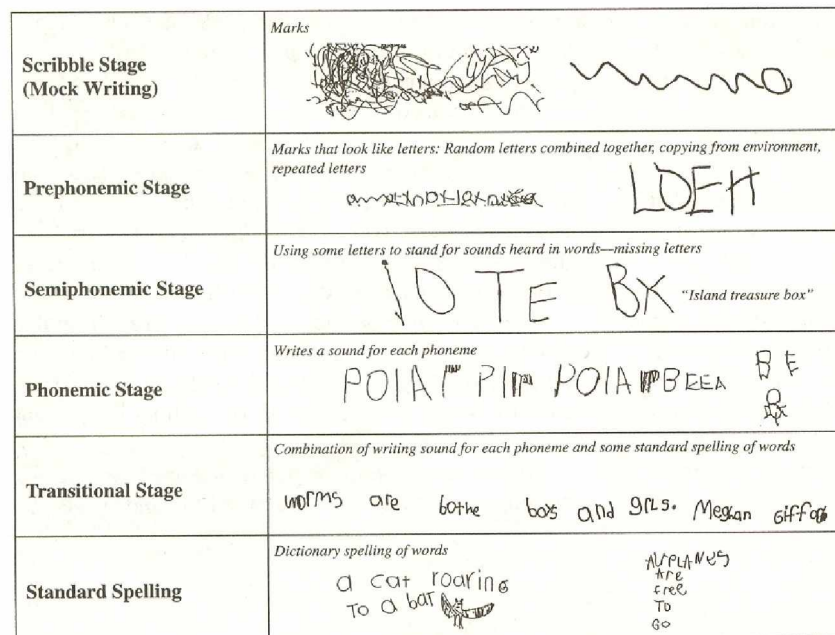 Scribble Stage
(Mock Writing)
Marks
Prephonemic Stage
Marks that look like letters: Random letters combined together, copying from environment,
repeated letters
LOEH
Semiphonemic Stage
Using some letters to stand for sounds heard in words—missing letters
IO TE BX
"Island treasure box"
Phonemic Stage
Writes a sound for each phoneme
Transitional Stage
Combination of writing sound for each phoneme and some standard spelling of words
worms are bothe boys and grls. Meghan
Standard Spelling
Dictionary spelling of words
a cat roaring
To a bat
AirPLANes
Are
free
To
Go